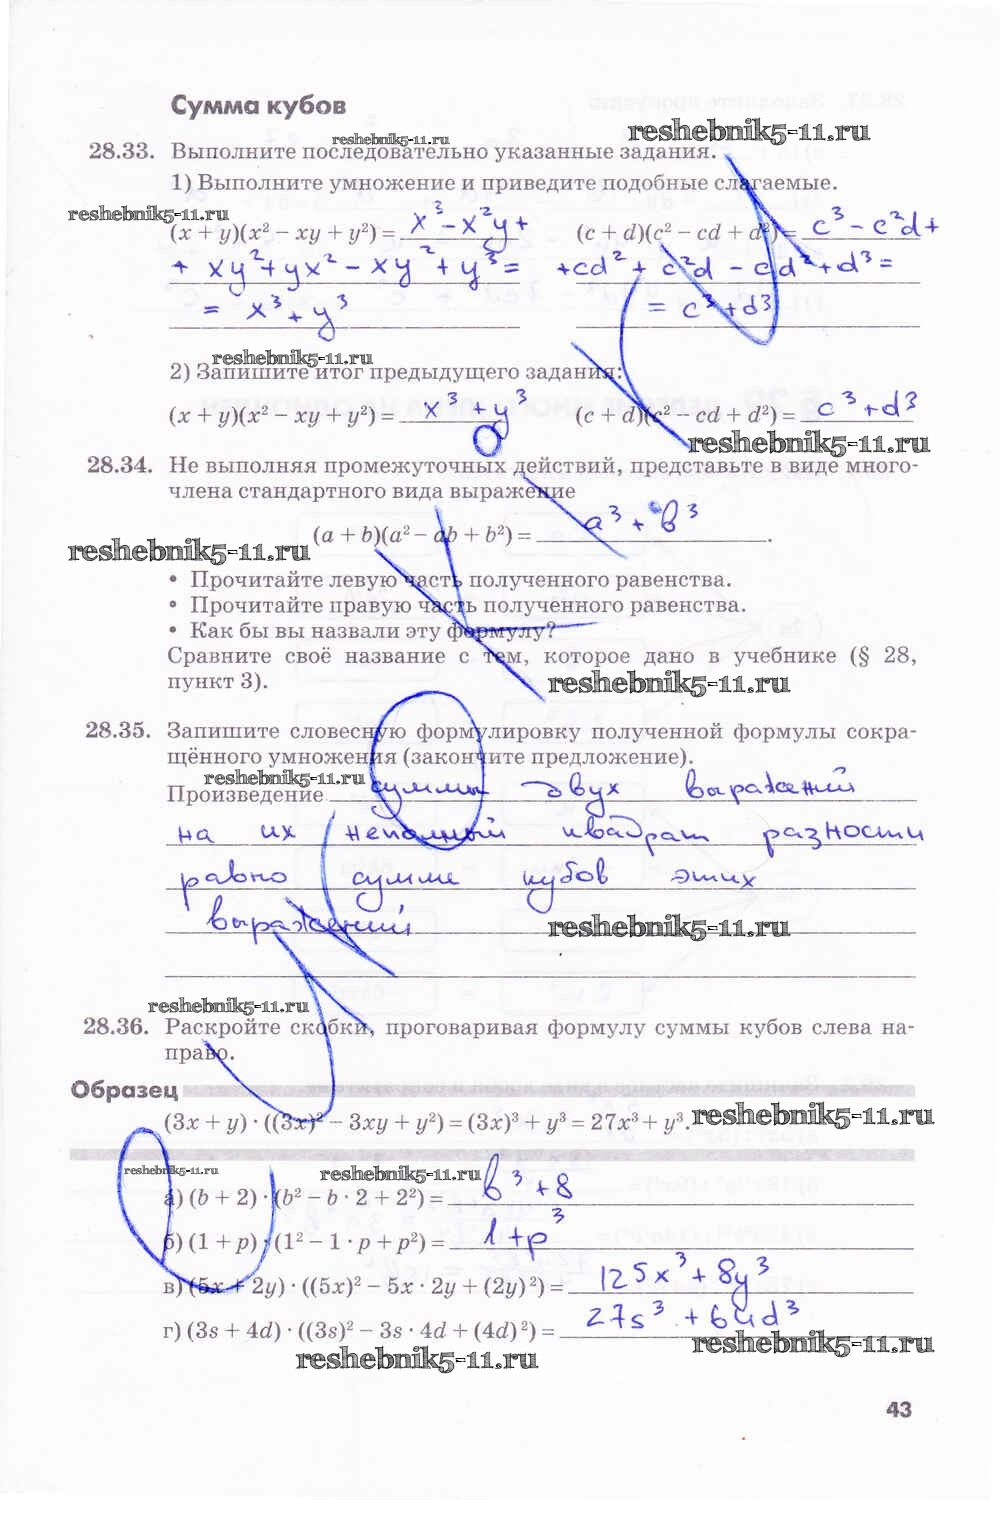 Сумма кубов
reshebnik5-11.ru
reshebnik5-11.ru
28.33. Выполните последовательно указанные задания.
1) Выполните умножение и приведите подобные слагаемые.
reshebnik5-11.ru
(x + y)(x² – xy + y²) = x³ – x²y + (c + d)(c² – cd + d²) = c³ – c²d +
+ xy² + yx² – xy² + y³ = +cd² + c²d – cd² + d³ =
= x³ + y³ = c³ + d³
reshebnik5-11.ru
2) Запишите итог предыдущего задания:
(x + y)(x² – xy + y²) = x³ + y³ (c + d)(c² – cd + d²) = c³ + d³
reshebnik5-11.ru
28.34. Не выполняя промежуточных действий, представьте в виде много-
члена стандартного вида выражение
(a + b)(a² – ab + b²) = a³ + b³.
reshebnik5-11.ru
• Прочитайте левую часть полученного равенства.
• Прочитайте правую часть полученного равенства.
• Как бы вы назвали эту формулу?
Сравните своё название с тем, которое дано в учебнике (§ 28,
пункт 3).
reshebnik5-11.ru
28.35. Запишите словесную формулировку полученной формулы сокра-
щённого умножения (закончите предложение).
reshebnik5-11.ru
Произведение суммы двух выражений
на их неполный квадрат разности
равно сумме кубов этих
выражений
reshebnik5-11.ru
reshebnik5-11.ru
28.36. Раскройте скобки, проговаривая формулу суммы кубов слева на-
право.
Образец
(3x + y) · ((3x)² – 3xy + y²) = (3x)³ + y³ = 27x³ + y³.
reshebnik5-11.ru
reshebnik5-11.ru
reshebnik5-11.ru
а) (b + 2) · (b² – b · 2 + 2²) = b³ + 8
б) (1 + p) · (1² – 1 · p + p²) = 1 + p³
в) (5x + 2y) · ((5x)² – 5x · 2y + (2y)²) = 125x³ + 8y³
г) (3s + 4d) · ((3s)² – 3s · 4d + (4d)²) = 27s³ + 64d³
reshebnik5-11.ru
reshebnik5-11.ru
43